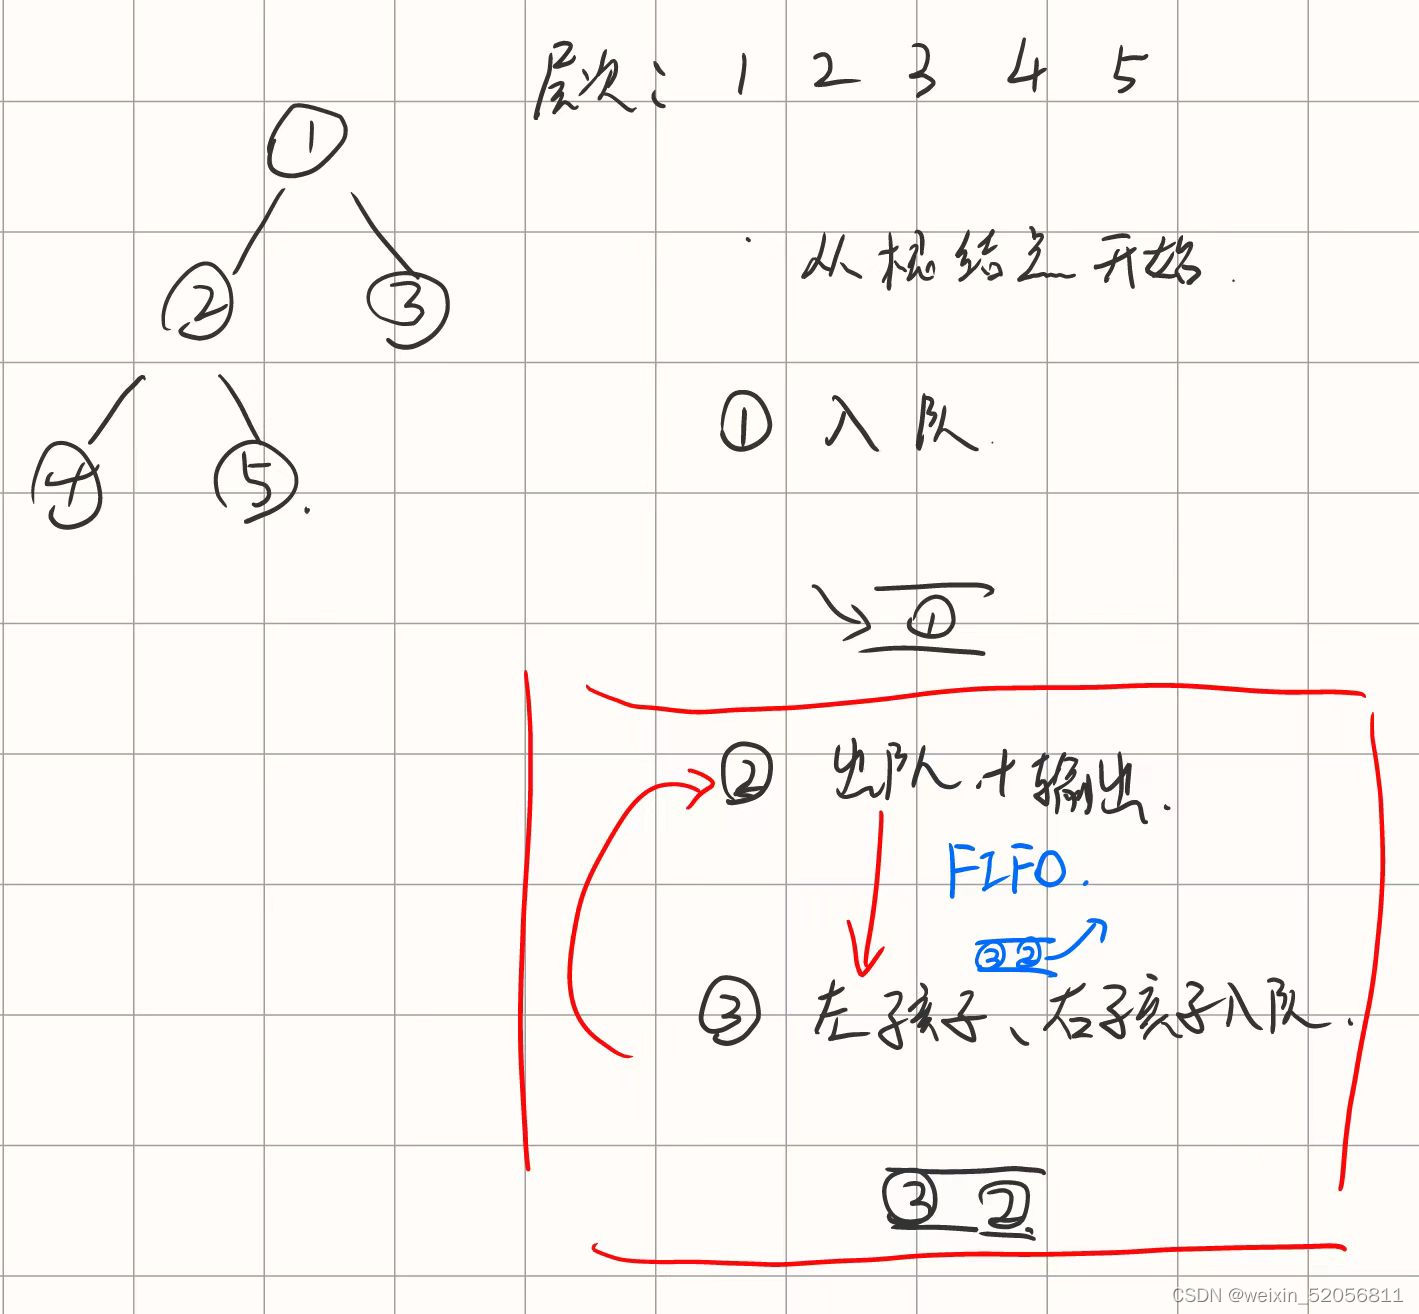 层次: 1 2 3 4 5
1
2 3
4 5.
从根结点开始.
① 入队.
①
② 出队.+输出.
FIFO.
③ ②
③ 左子孩子、右子孩子入队.
③ ②
CSDN @weixin_52056811